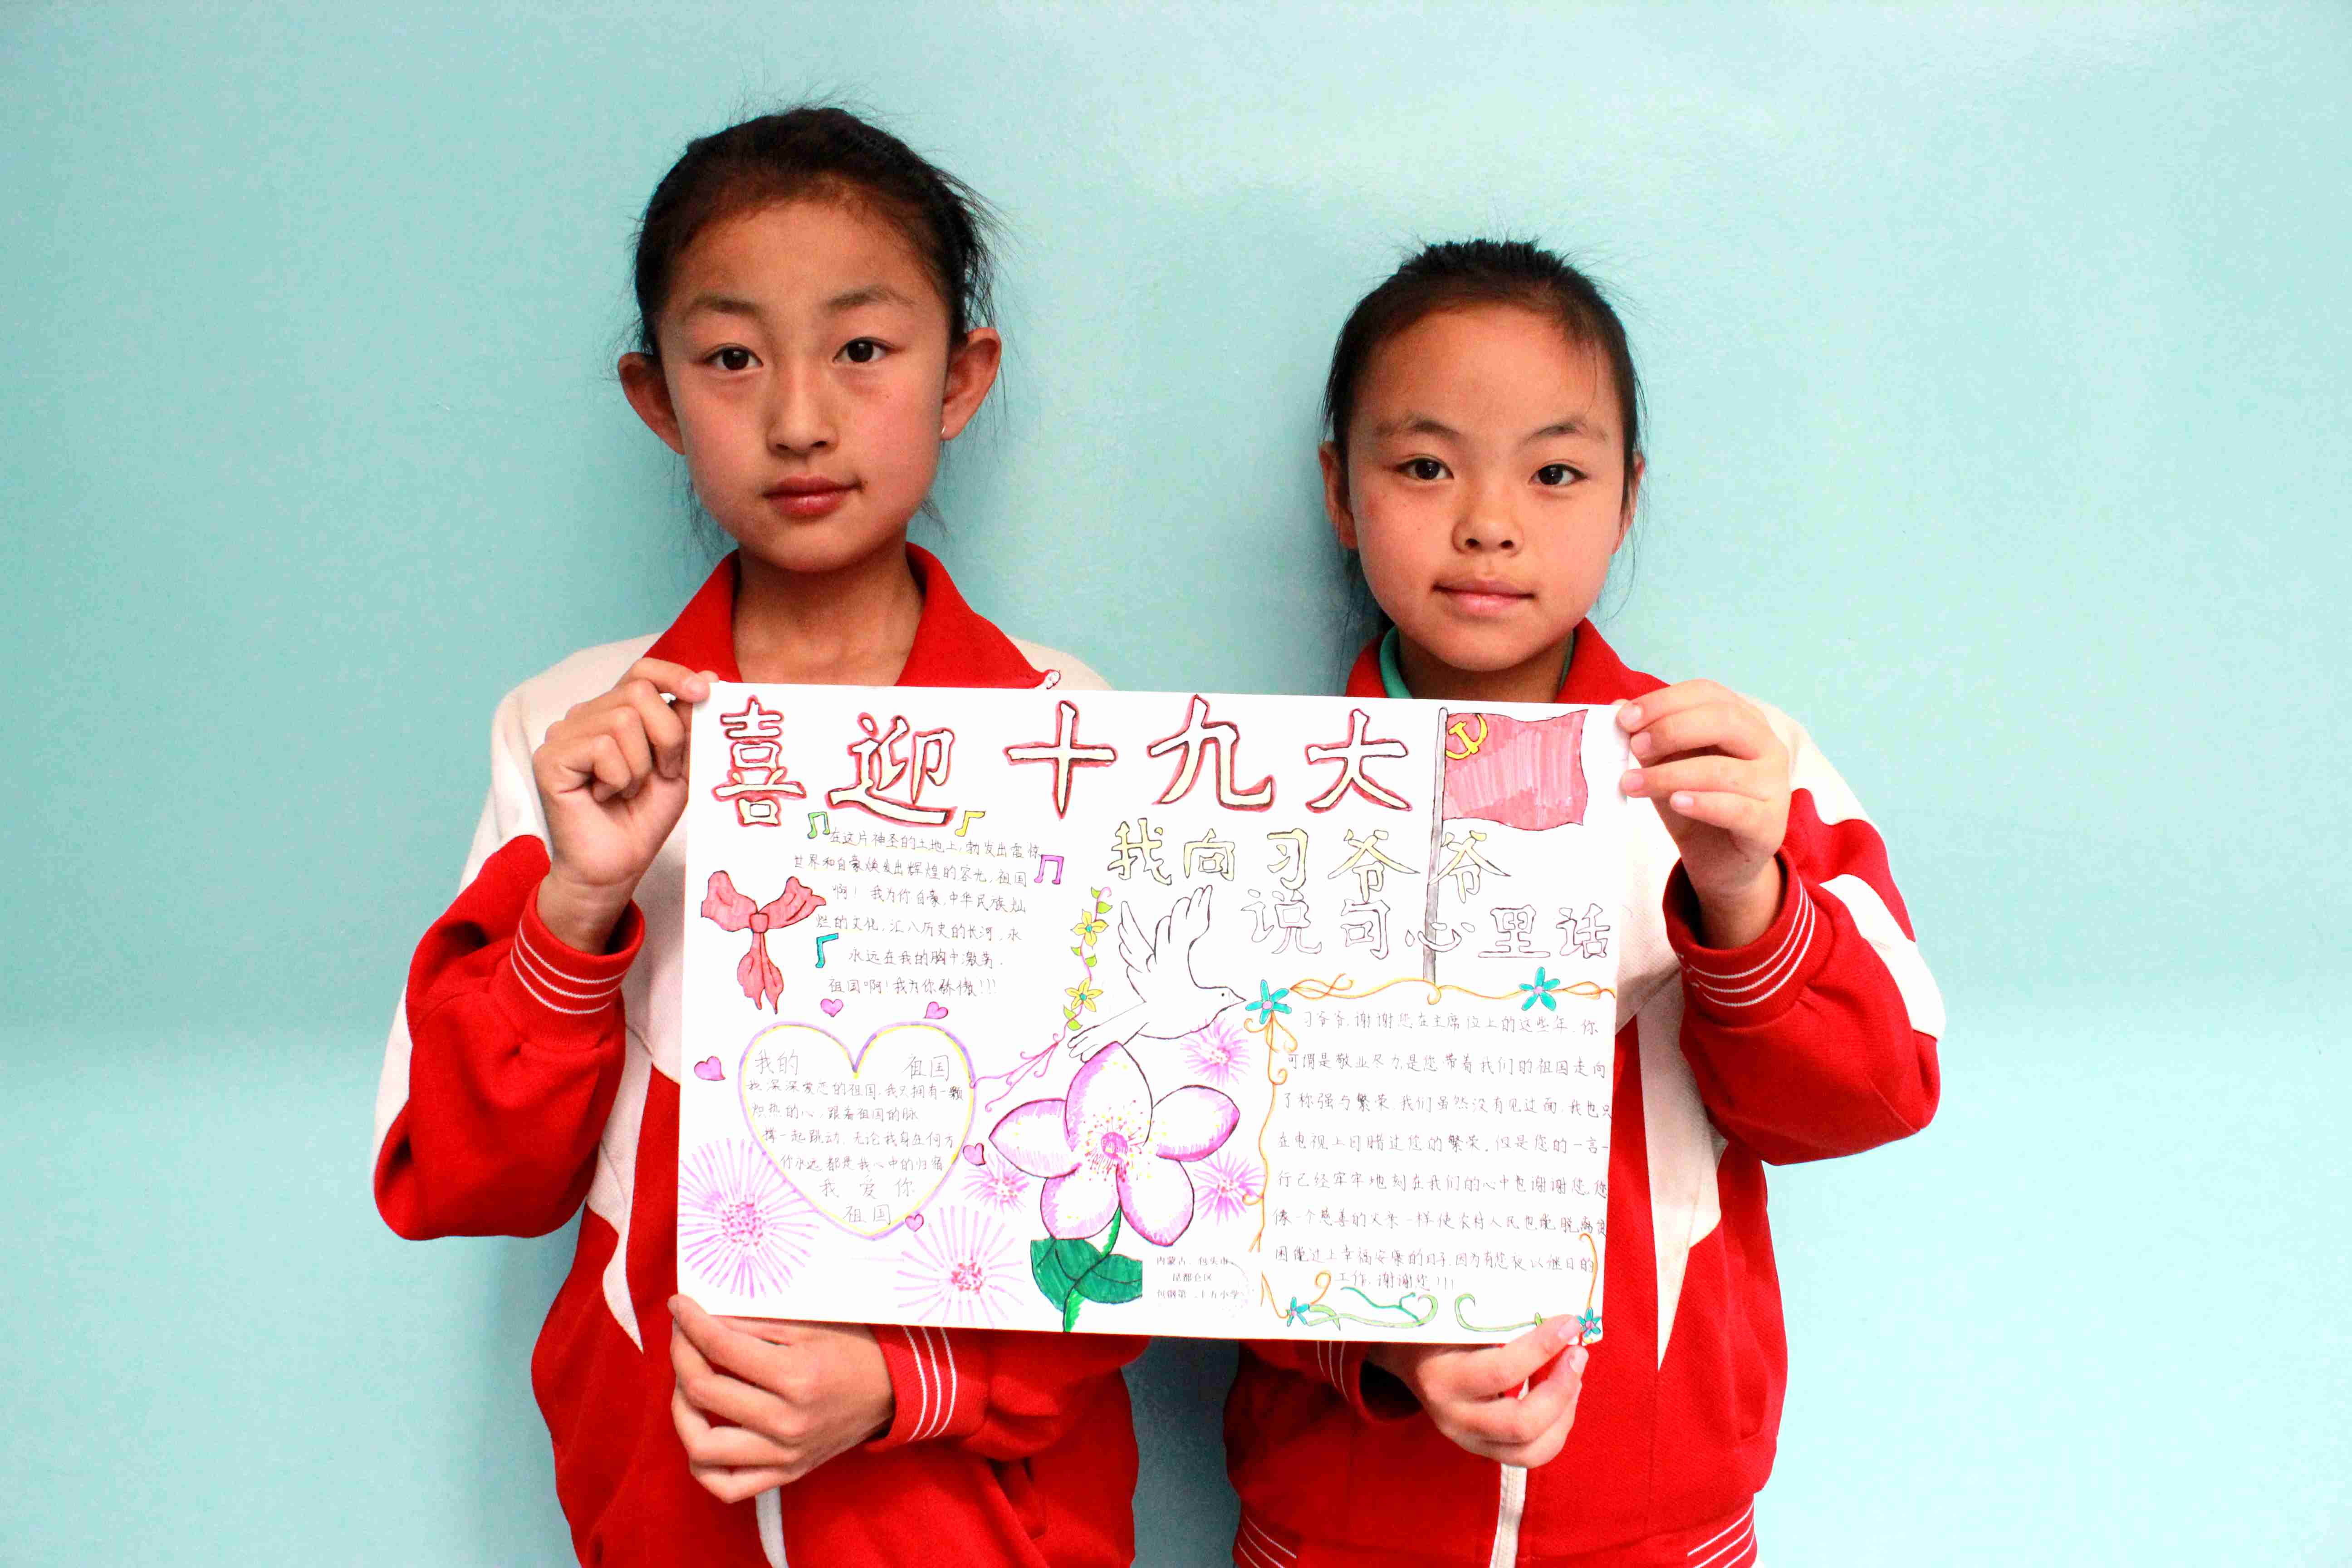 喜迎十九大
我向习爷爷
说句心里话
在这片神圣的土地上,勃发出震惊
世界和自豪焕发出辉煌的容光,祖国
啊!我为你自豪,中华民族灿
烂的文化,汇入历史的长河,永
永远在我的胸中激荡.
祖国啊!我为你骄傲!!!
我的 祖国
我深深爱恋的祖国,我只拥有一颗
炽热的心,跟着祖国的脉
搏一起跳动,无论我身在何方
你永远都是我心中的归宿
我爱你
祖国
习爷爷,谢谢您在主席位上的这些年,你
可谓是敬业尽力,是您带着我们的祖国走向
了称强与繁荣,我们虽然没有见过面,我也只
在电视上目睹过您的繁荣,但是您的一言一
行已经牢牢地刻在我们的心中也谢谢您,您
像一个慈善的父亲一样使农村人民也能脱离贫
困能过上幸福安康的日子,因为有您夜以继日的
工作,谢谢您!!!
内蒙古,包头市
昆都仑区
包钢第二十五小学